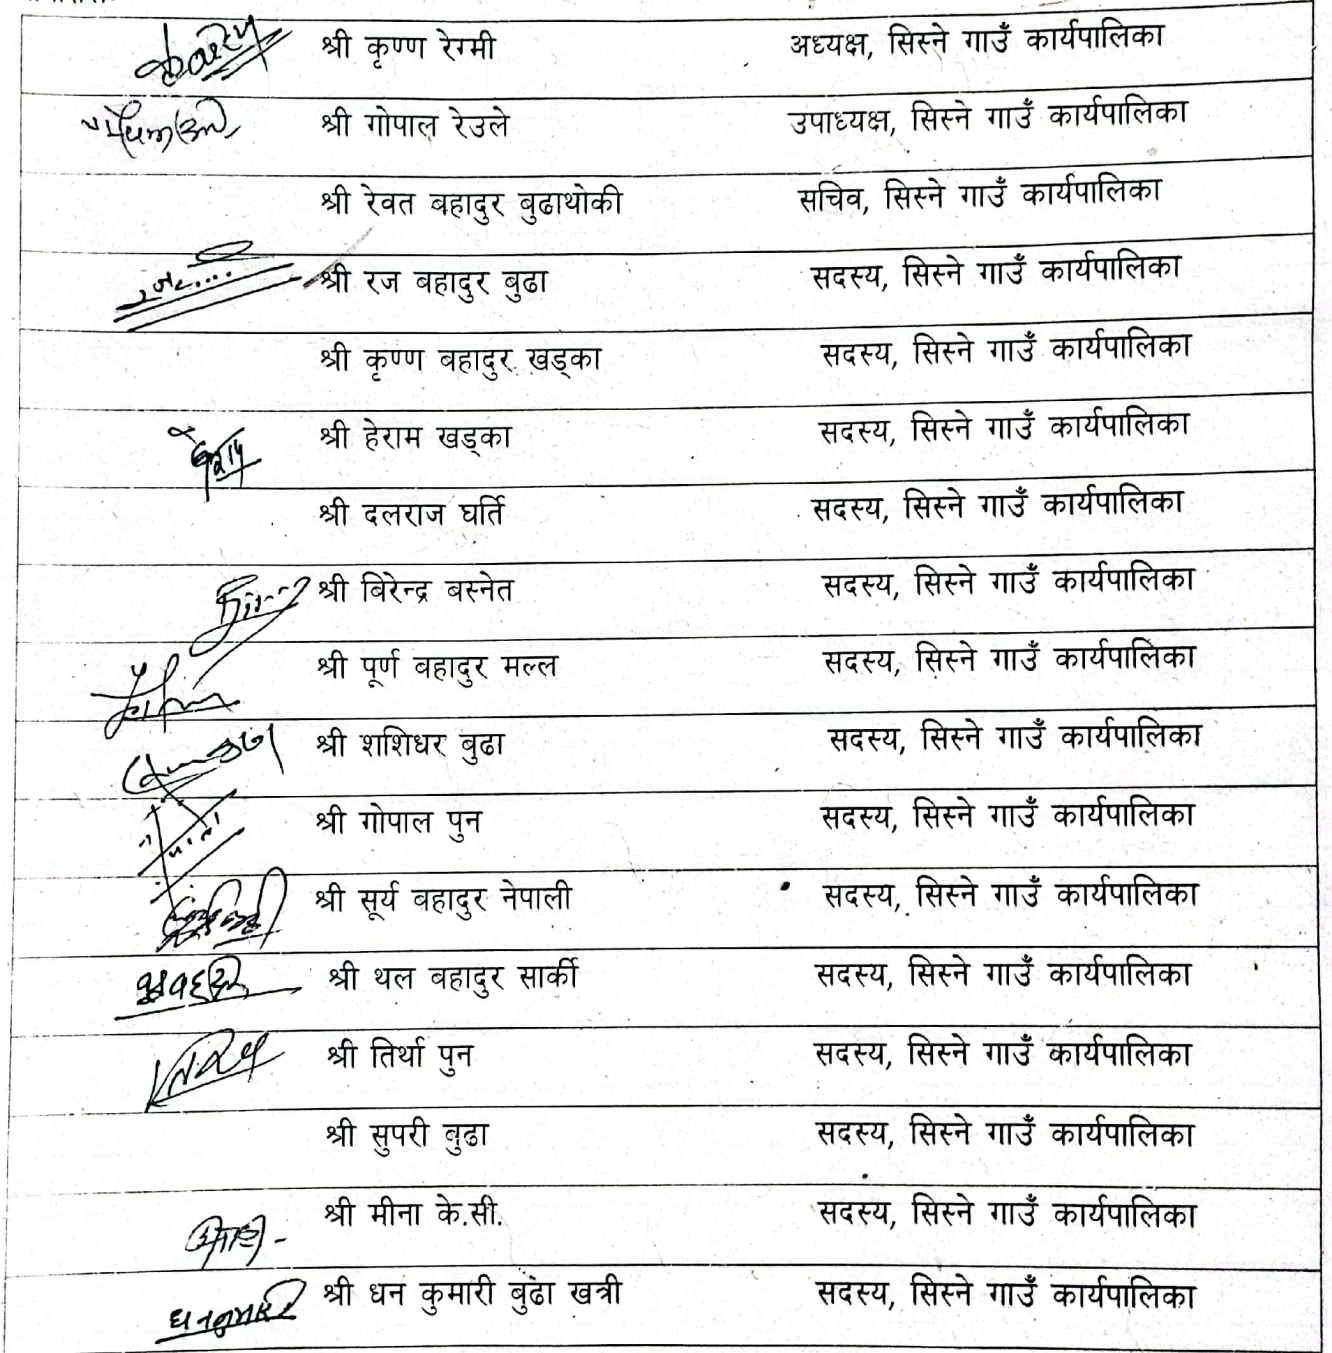 श्री कृण्ण रेग्मी अध्यक्ष, सिस्ने गाउँ कार्यपालिका
श्री गोपाल रेउले उपाध्यक्ष, सिस्ने गाउँ कार्यपालिका
श्री रेवत बहादुर बुढाथोकी सचिव, सिस्ने गाउँ कार्यपालिका
श्री रज बहादुर बुढा सदस्य, सिस्ने गाउँ कार्यपालिका
श्री कृण्ण बहादुर खड्का सदस्य, सिस्ने गाउँ कार्यपालिका
श्री हेराम खड्का सदस्य, सिस्ने गाउँ कार्यपालिका
श्री दलराज घर्ति सदस्य, सिस्ने गाउँ कार्यपालिका
श्री बिरेन्द्र बस्नेत सदस्य, सिस्ने गाउँ कार्यपालिका
श्री पूर्ण बहादुर मल्ल सदस्य, सिस्ने गाउँ कार्यपालिका
श्री शशिधर बुढा सदस्य, सिस्ने गाउँ कार्यपालिका
श्री गोपाल पुन सदस्य, सिस्ने गाउँ कार्यपालिका
श्री सूर्य बहादुर नेपाली सदस्य, सिस्ने गाउँ कार्यपालिका
श्री थल बहादुर सार्की सदस्य, सिस्ने गाउँ कार्यपालिका
श्री तिर्था पुन सदस्य, सिस्ने गाउँ कार्यपालिका
श्री सुपरी बुढा सदस्य, सिस्ने गाउँ कार्यपालिका
श्री मीना के.सी. सदस्य, सिस्ने गाउँ कार्यपालिका
श्री धन कुमारी बुढा खत्री सदस्य, सिस्ने गाउँ कार्यपालिका